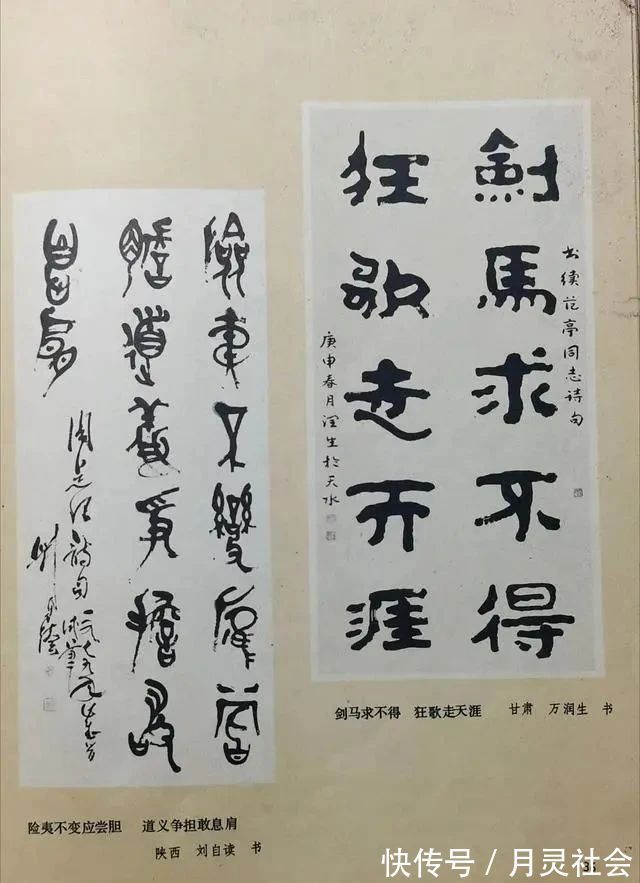 劍馬求不得
狂歌走天涯
书续范亭同志诗句
庚申春月润生於天水
剑马求不得 狂歌走天涯 甘肃 万润生 书
險夷不變應嘗
膽道義爭擔敢
息肩
周总理诗句 一九七九年
险夷不变应尝胆 道义争担敢息肩
陕西 刘自读 书
快传号/月灵社会